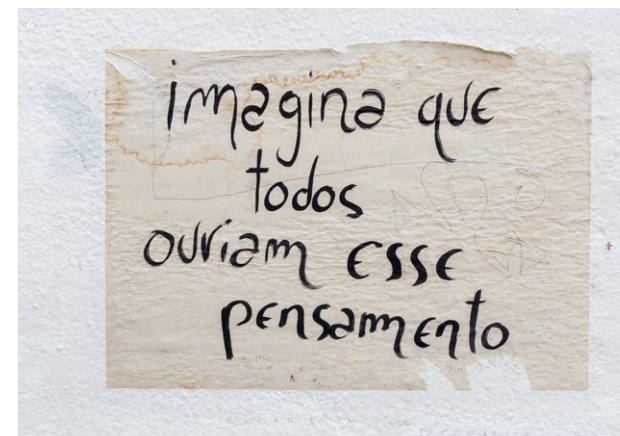 imagina que
todos
ouviam esse
pensamento